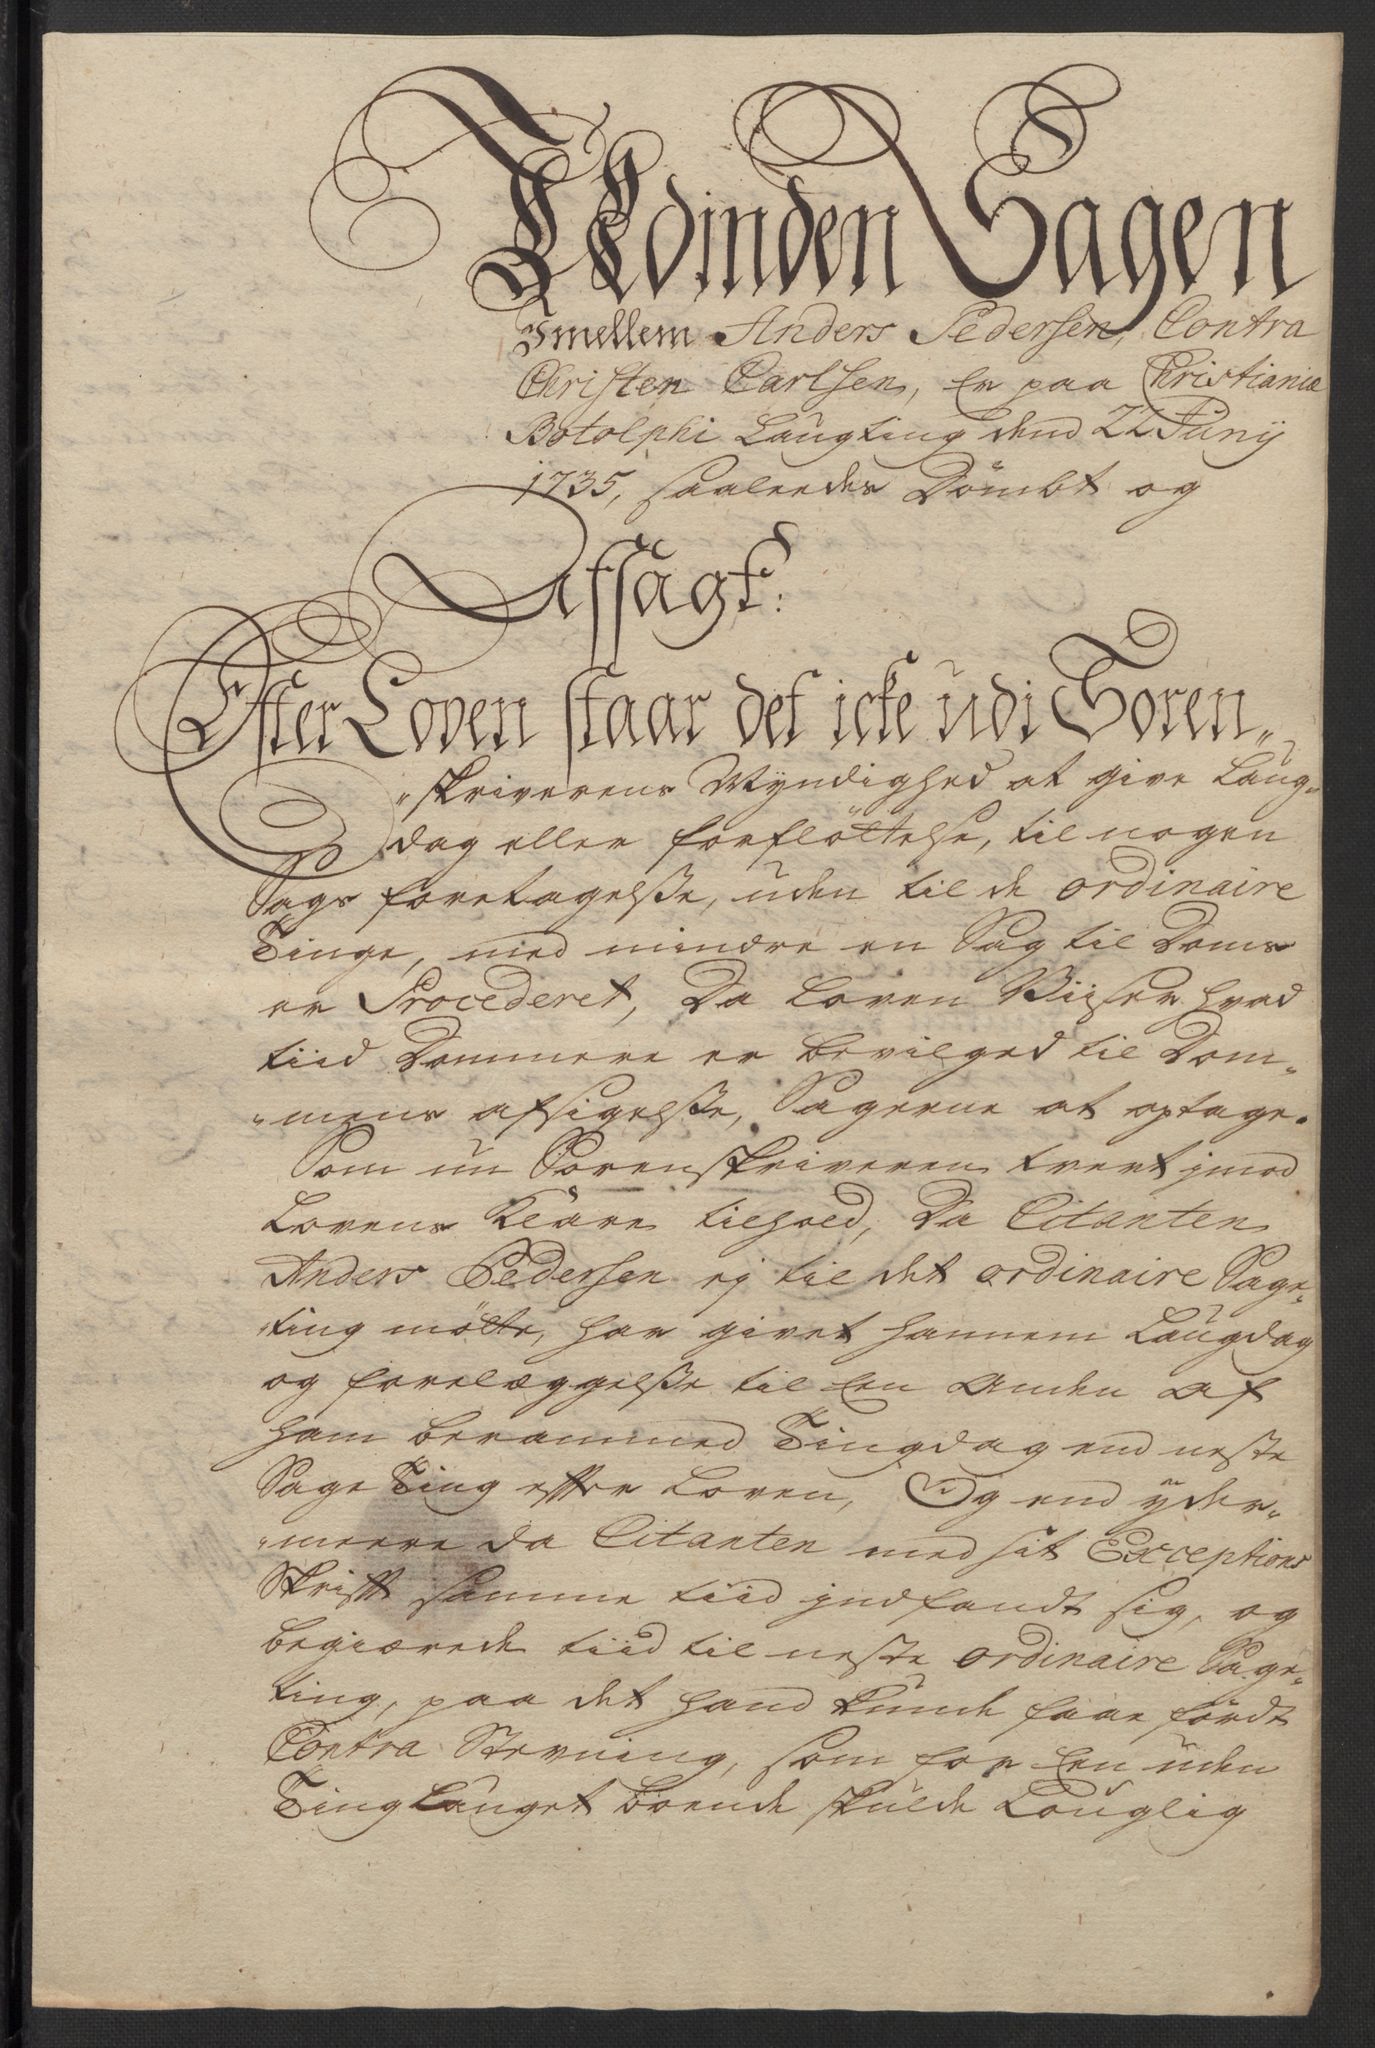 Udinden Sagen
Imellem Anders Pedersen, Contra
Christen Carlsen, er paa Christianiæ
Botolphi Laugting dend 22 Junij
1735, saaleedes Dömbt og
Afsagt:
Efter Loven staar det icke udi Soren„
„skriverens Myndighed at give Laug„
dag eller forflöttelse, til nogen
Sags foretagelsse, uden til de ordinaire
Tinge, med mindre en Sag til Doms
er Procederet, Da Loven Viiser hvad
tiid Dommere er bevilged til Dom„
„mens afsigelsse, Sagerne at optage.
Som nu Sorenskriveren tvert imod
Lovens klare tilhold, Da Citanten
Anders Pedersen ej til det ordinaire Sage„
„ting mötte, har givet hannem Laugdag
og forelæggelsse til En Anden af
ham berammed Tingdag end neste
Sage Ting efter Loven, Og end yder„
„meere da Citanten med sit Exceptions
Skrifft samme tiid indfandt sig, og
begiærede tiid til neste ordinaire Sage„
ting, paa det hand kunde faae fördt
Contra Stevning, som for En uden
Tinglauget boende skulde Lauglig